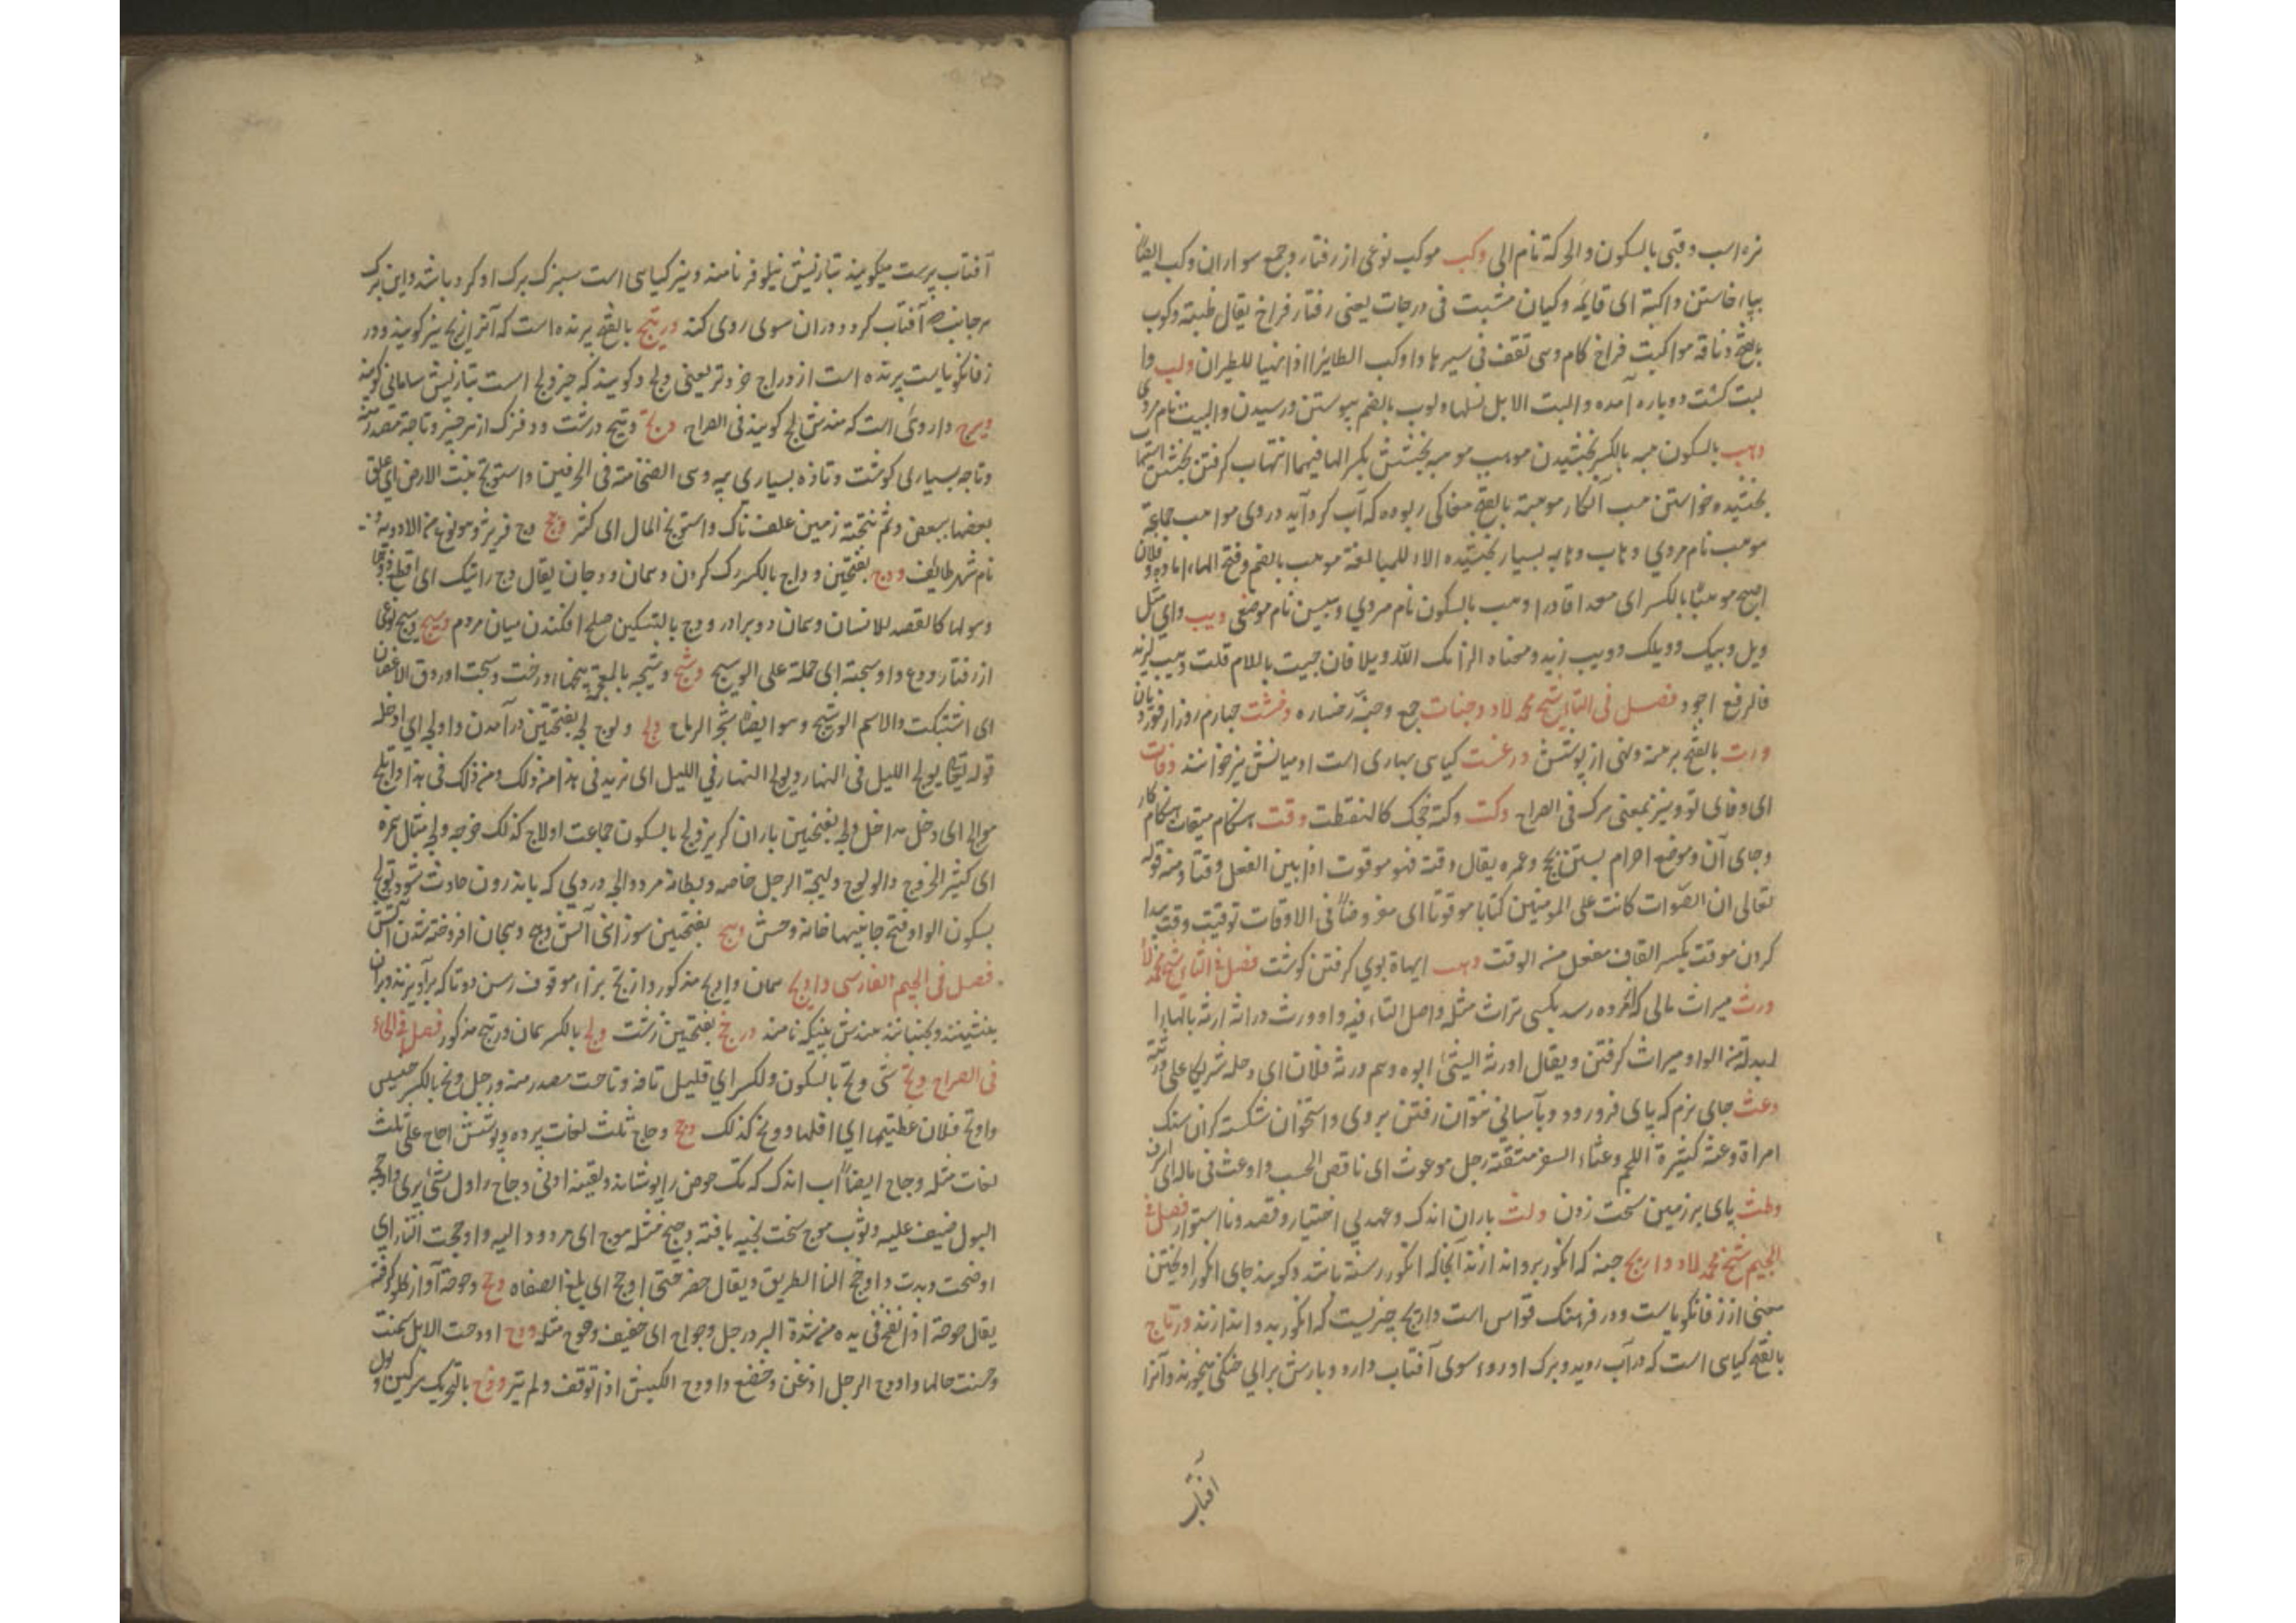 نره اسب وقبی بالسکون والحرکة نام الی وکب موکب نوعی از رفتار و جمع سواران وکب ایضاً
بپا خاستن واکبة ای قایمه وکیان مشبت فی درجات یعنی رفتار فراخ یقال ظبیة وکوب
بالفتح وناقة مواکبت فراخ کام وسی تقف فی سیرها واوکب الطایر اذا تهیا للطیران ولب وا
لبت کشت دوباره آمده والبت الابل نسلها ولوب بالضم پیوستن ورسیدن والبیت نام مردی
وهب بالسکون هبه بالکسر بخشیدن موهب موهبه بخشش بکسر الها فیهما اتهاب کرفتن بخشش
بخشیده وخواستن موهبة بالفتح مغاکی ربوده که آب کرد آید در وی مواهب جماعة
موهب نام مردی وهاب وهابه بسیار بخشیده الهاء للمبالغة موهب بالضم وفتح الهاء
اصبح موهبا بالکسر ای معدا قادرا وهب بالسکون نام مردی وهبین نام موضعی ویب وای مثل
ویل ویبک وویلک وویب زید ومعناه الزمک الله ویلا فان جیت باللام قلت ویب لزید
فالرفع اجود فصل فی التاء شیخ محمد لاد وجنات جمع وجنة رخساره وخشت چهارم روز از
ورت بالفتح برهنه ولهی از پوشش ورغست کیاهی بهاری است او میانش نیز خوانند وفات
ای وفای تو و نیز بمعنی مرک فی الصراح وکت وکته خجک کالنقطة وقت هنکام میقات هنکام کار
وجای آن وموضع احرام بستن حج وعمره یقال وقته فهو موقوت اذا بین الفعل وقتا ومنه قوله
تعالی ان الصلوات کانت علی المومنین کتابا موقوتا ای مفروضاً فی الاوقات توقیت وقت پیدا
کردن موقت بکسر القاف مفعل من الوقت وهب ایهاة بوی کرفتن کوشت فصل فی الثاء شیخ محمد لاد
ورث میراث مالی که از مرده رسد بکسی تراث مثله واصل التاء فیه واو وورث وراثة ارثه بالهاء
لبدلة من الواو میراث کرفتن ویقال اورثه الشیٔ ابوه وهم ورثة فلان ای دخله شریکا علی ورثته
وعث جای نرم که پای فرو رود وبآسانی نتوان رفتن بر وی واستخوان شکسته کران سنک
امراة وعثة کثیرة اللحم وعثاء السفر مشقته رجل موعوث ای ناقص الحسب واوعث فی ماله ای اسرف
وطث پای بر زمین سخت زدن ولث باران اندک وعهد بی اختیار وقصد ونااستوار فصل فی
الجیم شیخ محمد لاد وا ریج جفته که انکور برو اندازند آنجا که انکور رسته باشد وکویند جای انکور آویختن
معنی از زفانکویاست ودر فرهنک قواس است واریج چیزیست که انکور بدو اندازند ورتاج
بالفتح کیاهی است که در آب روید وبرک او روی سوی آفتاب دارد وبارش برای خشکی میخورند وآنرا
افتاب
آفتاب پرست میکویند بتازیش نیلوفر نامند ونیز کیاهی است سبزک برک او کرد باشد واین برک
هر جانب که آفتاب کردد دران سوی روی کند ورتیج بالفتح پرنده است که آنرا نیز کویند ودر
زفانکویاست پرنده است از دراج خردتر یعنی ولج وکویند که چیز ولج است بتازیش سامانی کویند
ویرج داروئ است که هندش لج کویند فی الصراح وتج وتیج درشت ووفزک از هر چیز وتاجة مصدر منه
وتاجه بسیاری کوشت وتازه بسیاری پیه وسی الضخامة فی الحرفین واستوثج نبت الارض ای علق
بعضها ببعض وثم مثجة زمین علف ناک واستوثج المال ای کثر وج وج فریز وهو نوع من الادویه و
نام شهر طائف ودج بفتحتین وداج بالکسر رک کردن وهمان وودجان یقال دج دابتک ای اقطع
وهو لها کالقصد للانسان وهمان دو برادر وودج بالتسکین صلح افکندن میان مردم وسیج وسج نوعی
از رفتار واوسجته ای حملته علی الوسیج وشج وشیجه بالمعجمة بیخهاء درخت وشجت اوروق الاغصان
ای اشتبکت والاسم الوشیج وهو ایضاً شجر الرماح ولج ولوج لج بفتحتین در آمدن واولج ای ادخله
قوله تعالی یولج اللیل فی النهار ویولج النهار فی اللیل ای نزید فی هذا من ذلک ومن ذلک فی هذا واتلج
موالج ای دخل مداخل ولجه بفتحتین باران کریز ولج بالسکون جماعت اولاج کذلک خرجه ولجه مثال همزه
ای کثیر الخروج والولوج ولیجة الرجل خاصه وبطانة مرد والج دردی که باندرون حادث شود تولج
بسکون الواو وفتح جانبیها خانه وحش وهج بفتحتین سوزانی آتش وهج وهجان افروخته شدن آتش
فصل فی الجیم الفارسی واوج همان واریج مذکور وازیج بزاء موقوف رسن دوتا که برآویزند وبران
بنشینند وبجنبانند هندش پنیکه نامند ورج بفتحتین زشت ولج بالکسر همان ورتیج مذکور فصل فی الحاء
فی الصراح وتح شی وتح بالسکون والکسر ای قلیل تافه وتاحت مصدر منه ورجل وتح بالکسر خسیس
واوتح فلان عطیته ای اقلها ووتح کذلک وجح وجاح ثلث لغات پرده وپوشش اجاح علی ثلث
لغات مثله وجاح ایضاً آب اندک که تک حوض را پوشاند ولقیته ادنی وجاح ای اول شیٔ یری واوجحه
البول ضیف علیه وثوب موجح سخت بخیه بافته وجیح مثله موجح ای مردود الیه واوجحت النار ای
اوضحت وبدت واوجح لنا الطریق ویقال حفر حتی اوجح ای بلغ الصفاة وح وحوحة آواز کلو کرفته
یقال حوحة اذا نفخ فی یده من شدة البرد رجل وحواح ای خفیف وحوح مثله ودح اودحت الابل سمنت
وحسنت حالها واودح الرجل اذعن وخضع واودح الکبش اذا توقف ولم ینز وذح بالتحریک سرکین وبول